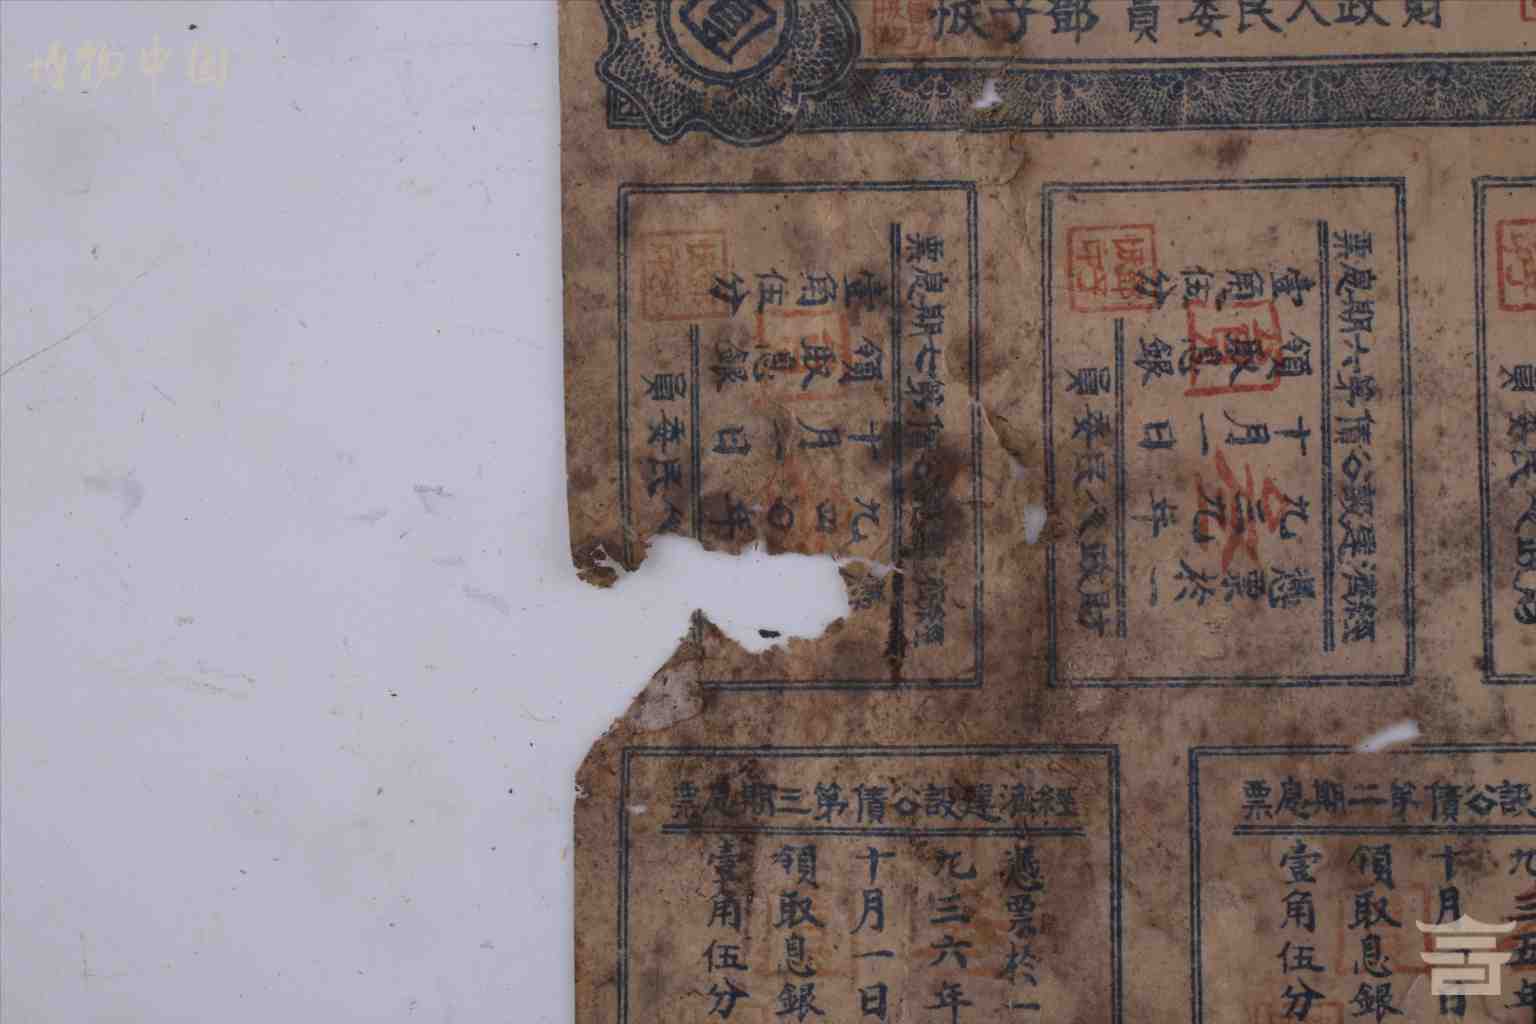 博物中国
財政人民委員鄧子恢
經濟建設公債第六期息票
憑票於一
九三九年
十月一日
領取息銀
壹角伍分
財政人民委員
經濟建設公債第七期息票
九四〇年
十月一日
領取息銀
壹角伍分
人民委員
財政人民委員
設公債第二期息票
九三五年
十月一日
領取息銀
壹角伍分
經濟建設公債第三期息票
憑票於一
九三六年
十月一日
領取息銀
壹角伍分